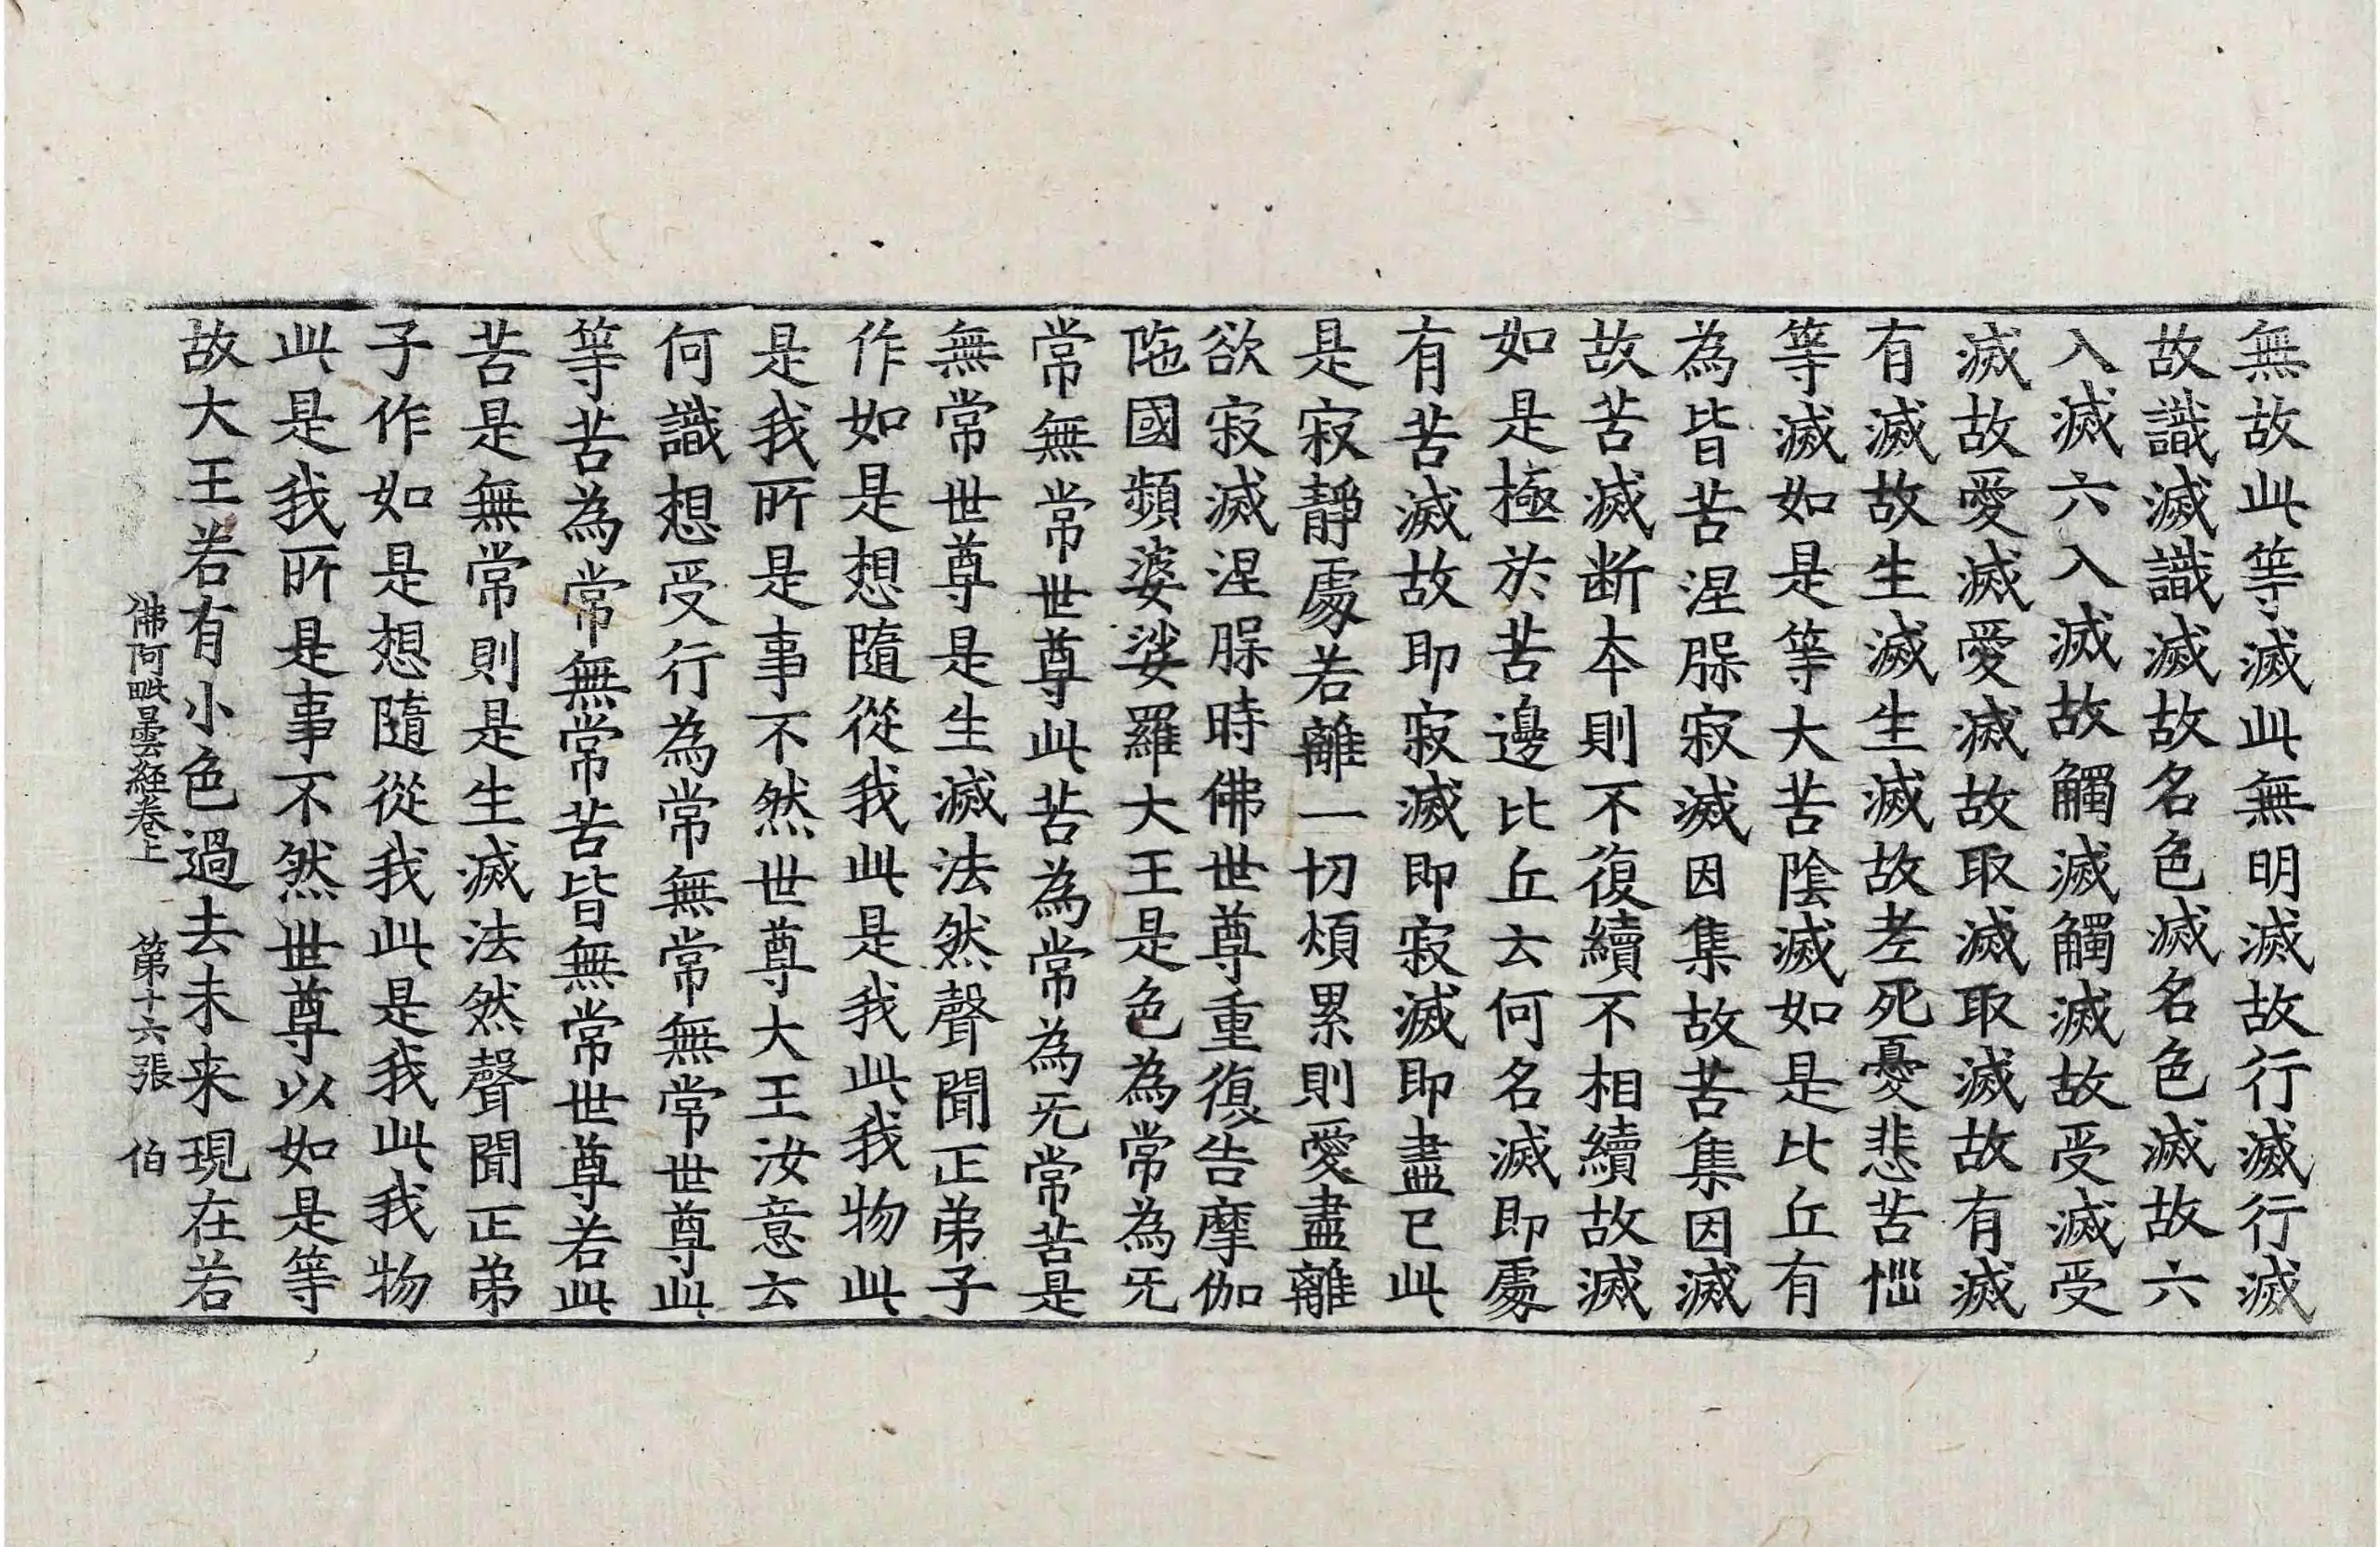 無故此等滅此無明滅故行滅行滅
故識滅識滅故名色滅名色滅故六
入滅六入滅故觸滅觸滅故受滅受
滅故愛滅愛滅故取滅取滅故有滅
有滅故生滅生滅故老死憂悲苦惱
等滅如是等大苦陰滅如是比丘有
為皆苦涅槃寂滅因集故苦集因滅
故苦滅断本則不復續不相續故滅
如是極於苦邊比丘云何名滅即處
有苦滅故即寂滅即寂滅即盡已此
是寂靜處若離一切煩累則愛盡離
欲寂滅涅槃時佛世尊重復告摩伽
陁國頻婆娑羅大王是色為常為无
常無常世尊此苦為常為无常苦是
無常世尊是生滅法然聲聞正弟子
作如是想隨從我此是我此我物此
是我所是事不然世尊大王汝意云
何識想受行為常無常無常世尊此
等苦為常無常苦皆無常世尊若此
苦是無常則是生滅法然聲聞正弟
子作如是想隨從我此是我此我物
此是我所是事不然世尊以如是等
故大王若有小色過去未来現在若
佛阿毗曇経卷上 第十六張 伯